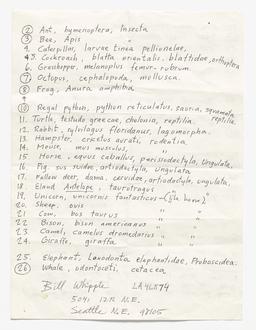 ② Ant, hymenoptera, Insecta
③ Bee, Apis "
4. Caterpillar, larvae tinea pellionelae,
5. Cockroach, blatta orientalis. blattidae, orthoptera
6. Grasshopper, melanoplus femur-rubrum.
⑦ Octopus, cephalopoda, mollusca.
⑧ Frog, Anura amphibia
9
⑩ Regal python, python reticulatus, sauria, squamata reptilia.
11. Turtle, testudo graecae, chelonia, reptilia.
12. Rabbit, sylvilagus floridanus, lagomorpha.
13. Hampster, cricetus aurati, rodentia
14. Mouse, mus musculus, "
15. Horse, equus caballus, perissodactyla, Ungulata.
16. Pig sus suidae, artiodactyla, ungulata
17. Fallow deer, dama, cervidae, artiodactyla, ungulata,
18. Eland Antelope, taurotragus " "
19. Unicorn, unicornis fantasticus
20. Sheep, ovis " "
21. Cow, bos taurus " "
22. Bison, bison americanus " "
23. Camel, camelus dromedarius " "
24. Giraffe, giraffa " "
25. Elephant, Loxodonta elephantidae, Proboscidea.
㉖ Whale, odontoceti, cetacea
Bill Whipple LA46874
5041 12th N.E.
Seattle N.E. 98105